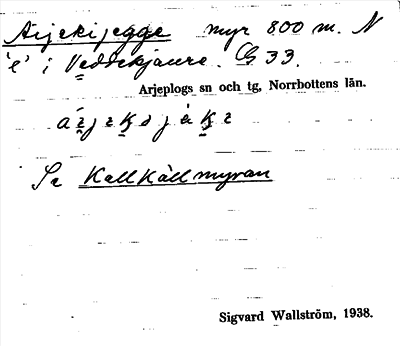 Aijekijegge myr 800 m. N
'e' i Veddekjaure. G 33.
Arjeplogs sn och tg, Norrbottens län.
Se Kallkällmyran
Sigvard Wallström, 1938.